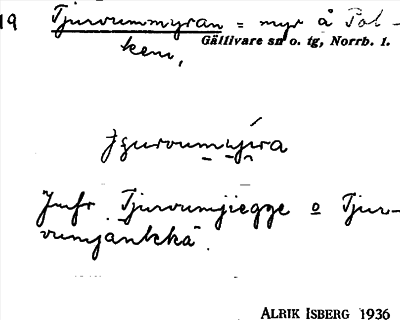 19 Tjurvummyran = myr å Pol-
Gällivare sn o. tg, Norrb. l.
ken,
Jmfr Tjurvumjiegge o Tjur-
vumjankkä.
ALRIK ISBERG 1936